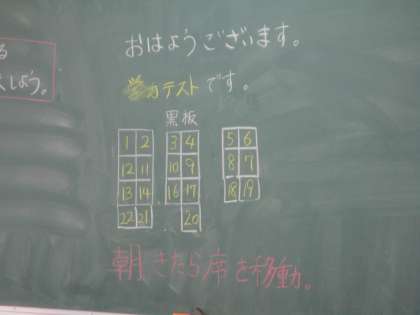 る
しょう。
おはようございます。
学力テストです。
黒板
1 2 3 4 5 6
12 11 10 9 8 7
13 14 16 17 18 19
22 21 20
朝きたら席を移動。